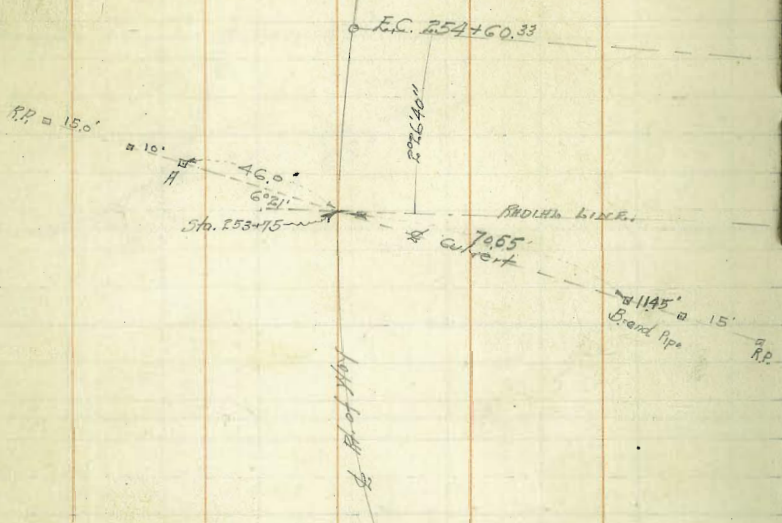 E.C. 254+60.33
R.P. 15.0'
10'
A
46.0
6°21'
2°26'40"
Sta. 253+75
RADIAL LINE.
℄ Culvert
70.65
11.45'
B end Pipe
15'
R.P.
℄